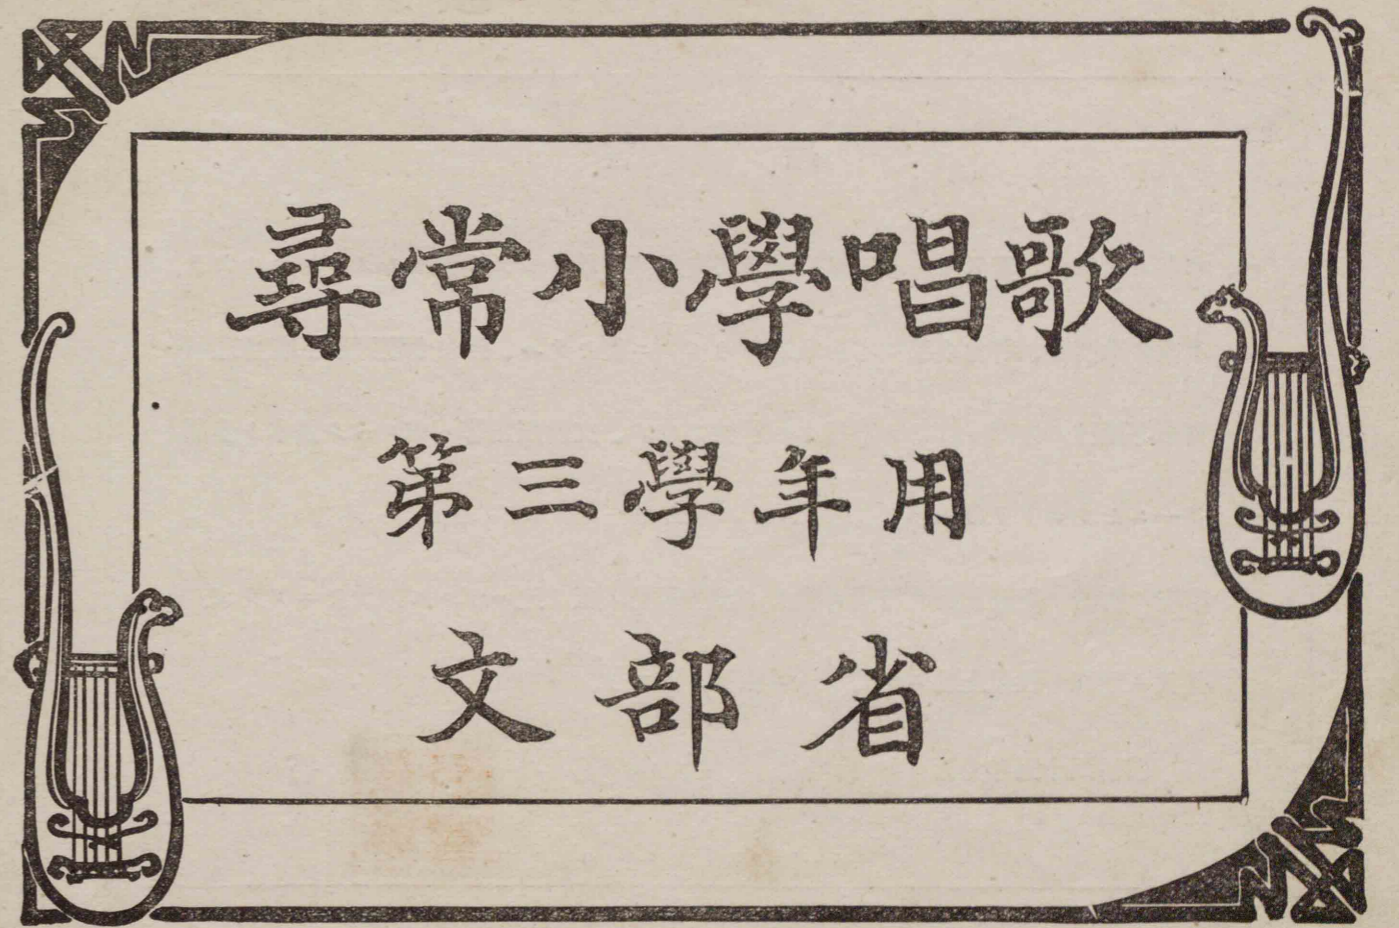 尋常小學唱歌
第三學年用
文部省